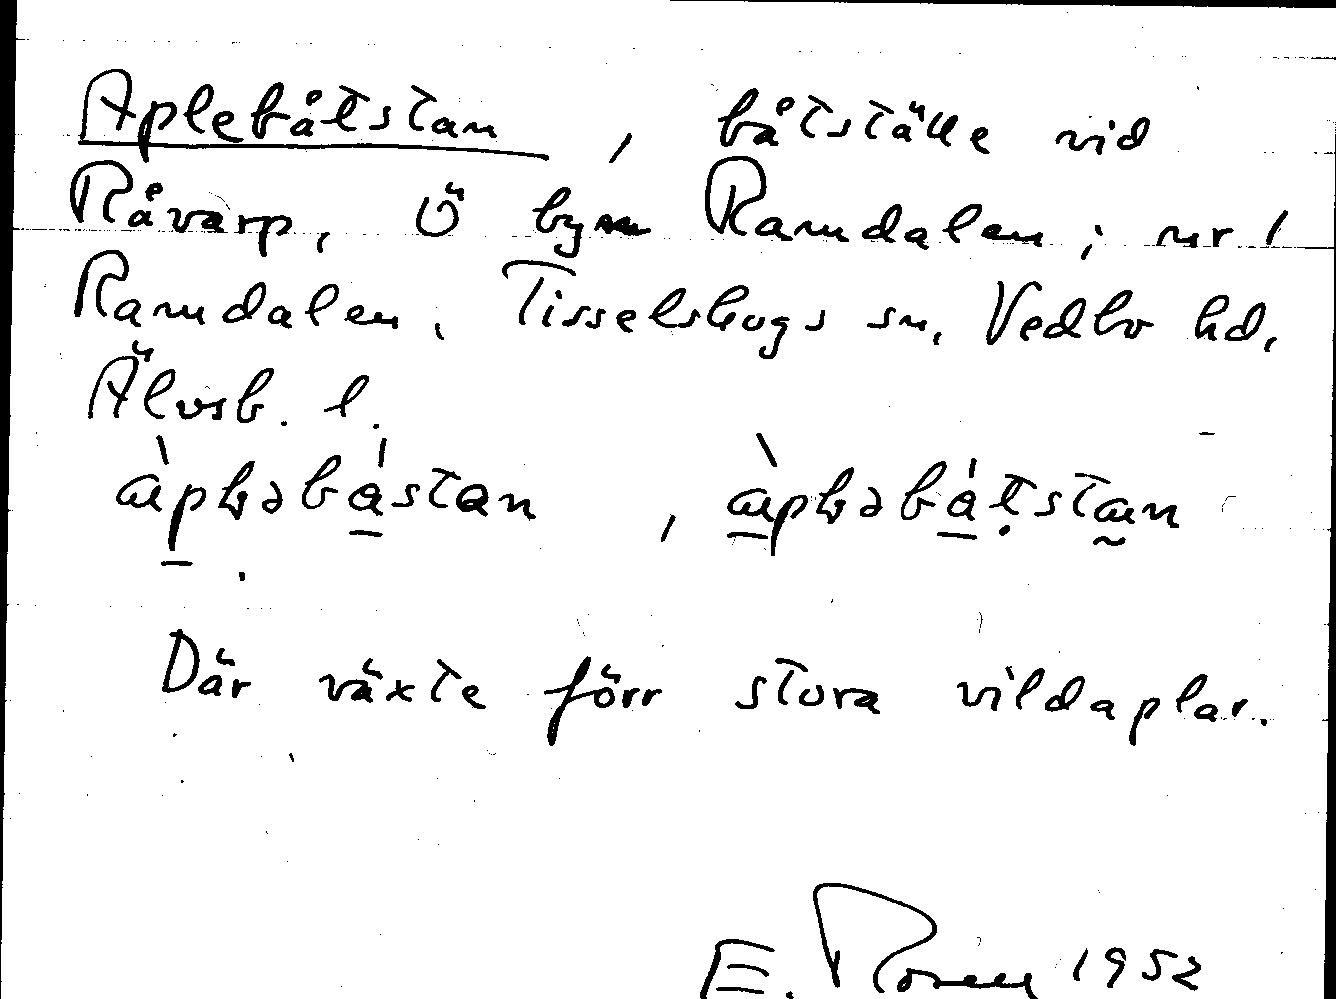 Aplebåtstan, båtställe vid
Råvarp, Ö byn Ramdalen; nr 1
Ramdalen, Tisselskogs sn, Vedbo hd,
Älvsb. l.
Där växte förr stora vildaplar.
E. Rosen 1952